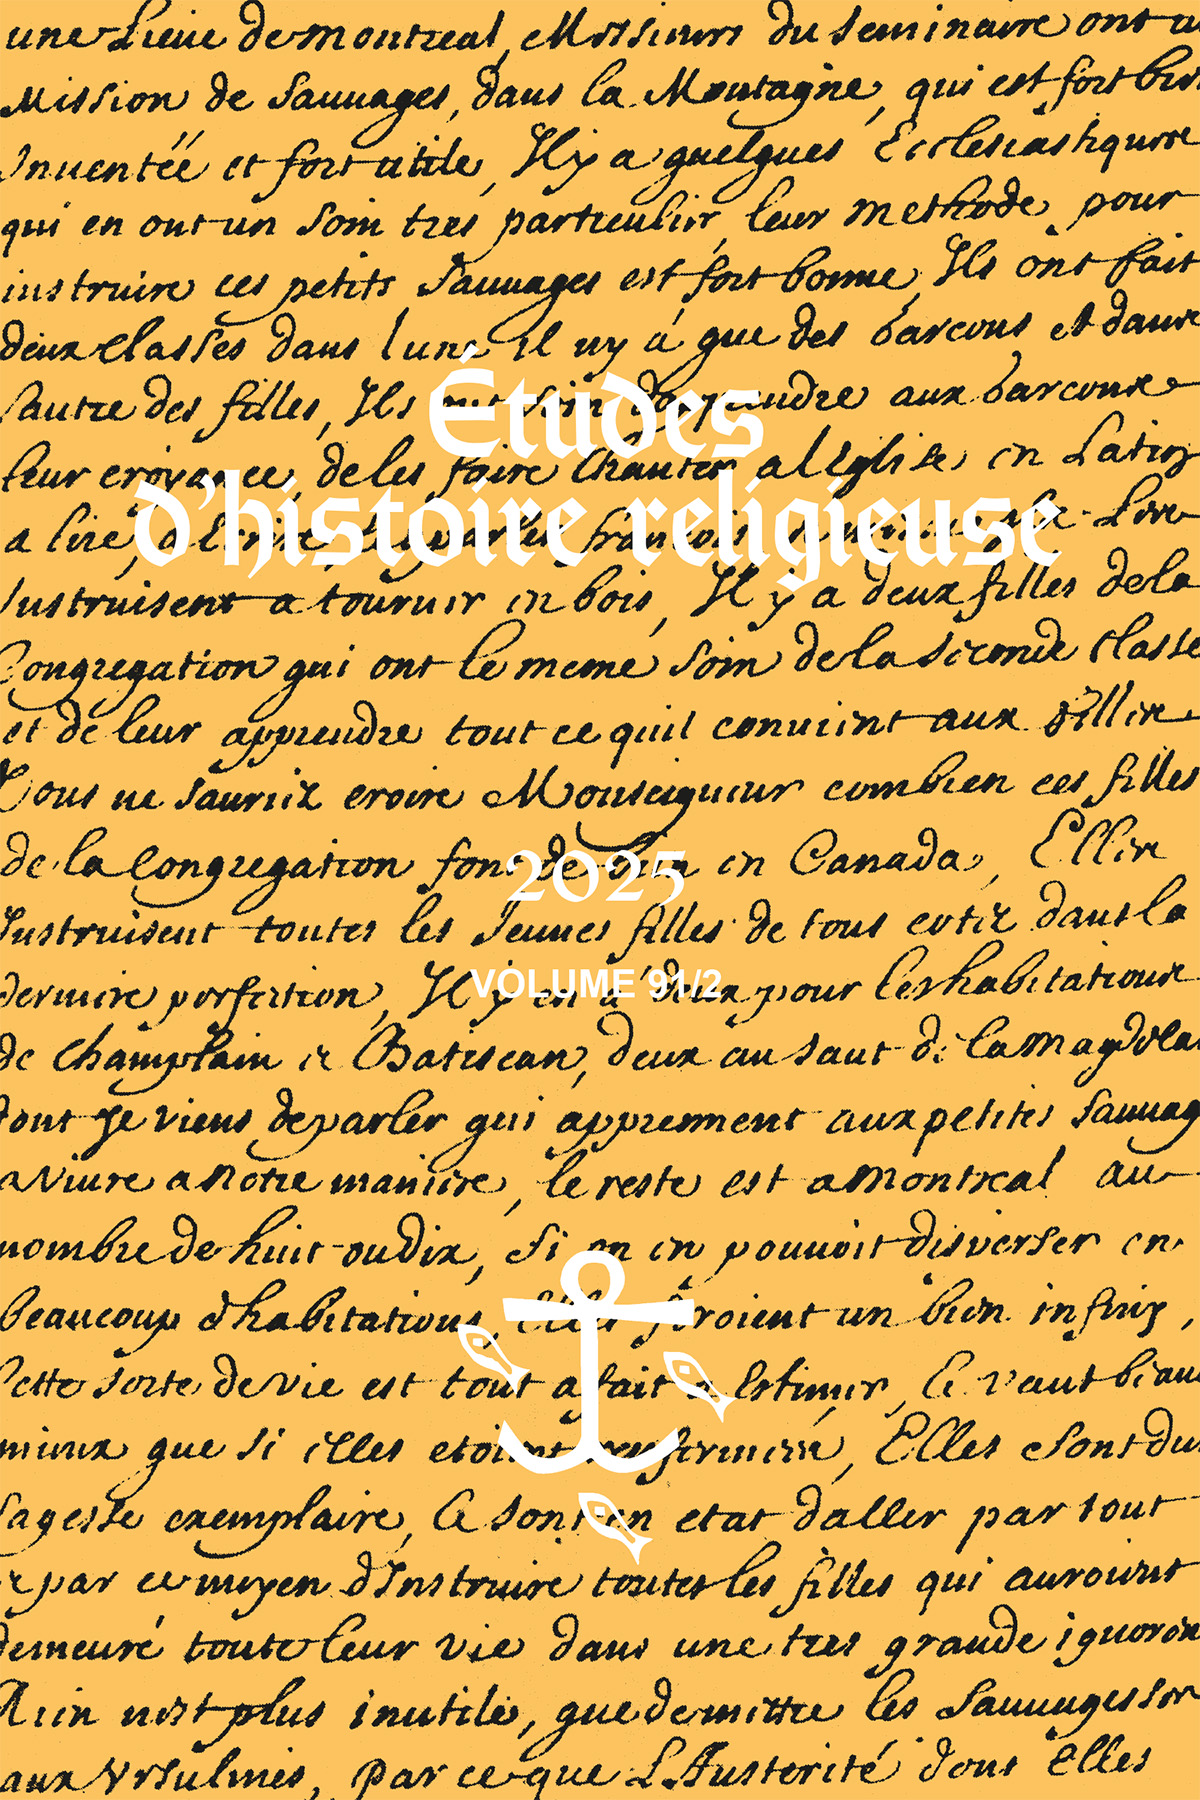 une Lieue de montreal, Messieurs du seminaire ont u
Mission de Sauuages, dans la Montagne, qui est fort bien
Inuentéé et fort utile, Il y a quelques Ecclesiastiques
qui en ont un soin tres particulier, leur methode pour
instruire ces petits Sauuages est fort bonne, Ils ont fait
deux classes dans lune il ny a que des Garcons et dans
lautre des filles, Ils ont soin daprendre aux Garcons
leur croyance, de les faire chanter a lEglise, en Latin
a lire, a Ecrire, a parler francois
Études
d’histoire religieuse
Instruisent a tourner en bois, Il y a deux filles de la
Congregation qui ont le meme soin de la seconde classe
et de leur apprendre tout ce quil conuient aux filles
Vous ne sauriez croire Monseigneur combien ces filles
de la Congregation font de bien en Canada, Elles
2025
Instruisent toutes les Jeunes filles de tous cotez dans la
derniere perfection, Il y en a deux pour les habitations
VOLUME 91/2
de Champlain et Batiscan, deux au saut de la Magdela
dont Je viens de parler qui apprennent aux petites Sauuag
a viure a notre maniere, le reste est a Montreal au
nombre de huit ou dix, Si on en pouuoit disperser en
beaucoup dhabitations, Elles feroient un bien infiny,
Cette sorte de vie est tout a fait a Estimer, Ce vaut beau
mieux que si elles etoient renfermées, Elles sont du
sagesse exemplaire, Ce sont en etat daller par tout
et par ce moyen dInstruire toutes les filles qui auroient
demeuré toute leur vie dans une tres grande ignoran
Rien nest plus inutile, que de mettre les Sauuuges
aux Vrsulines, par ce que LAusterité dont Elles